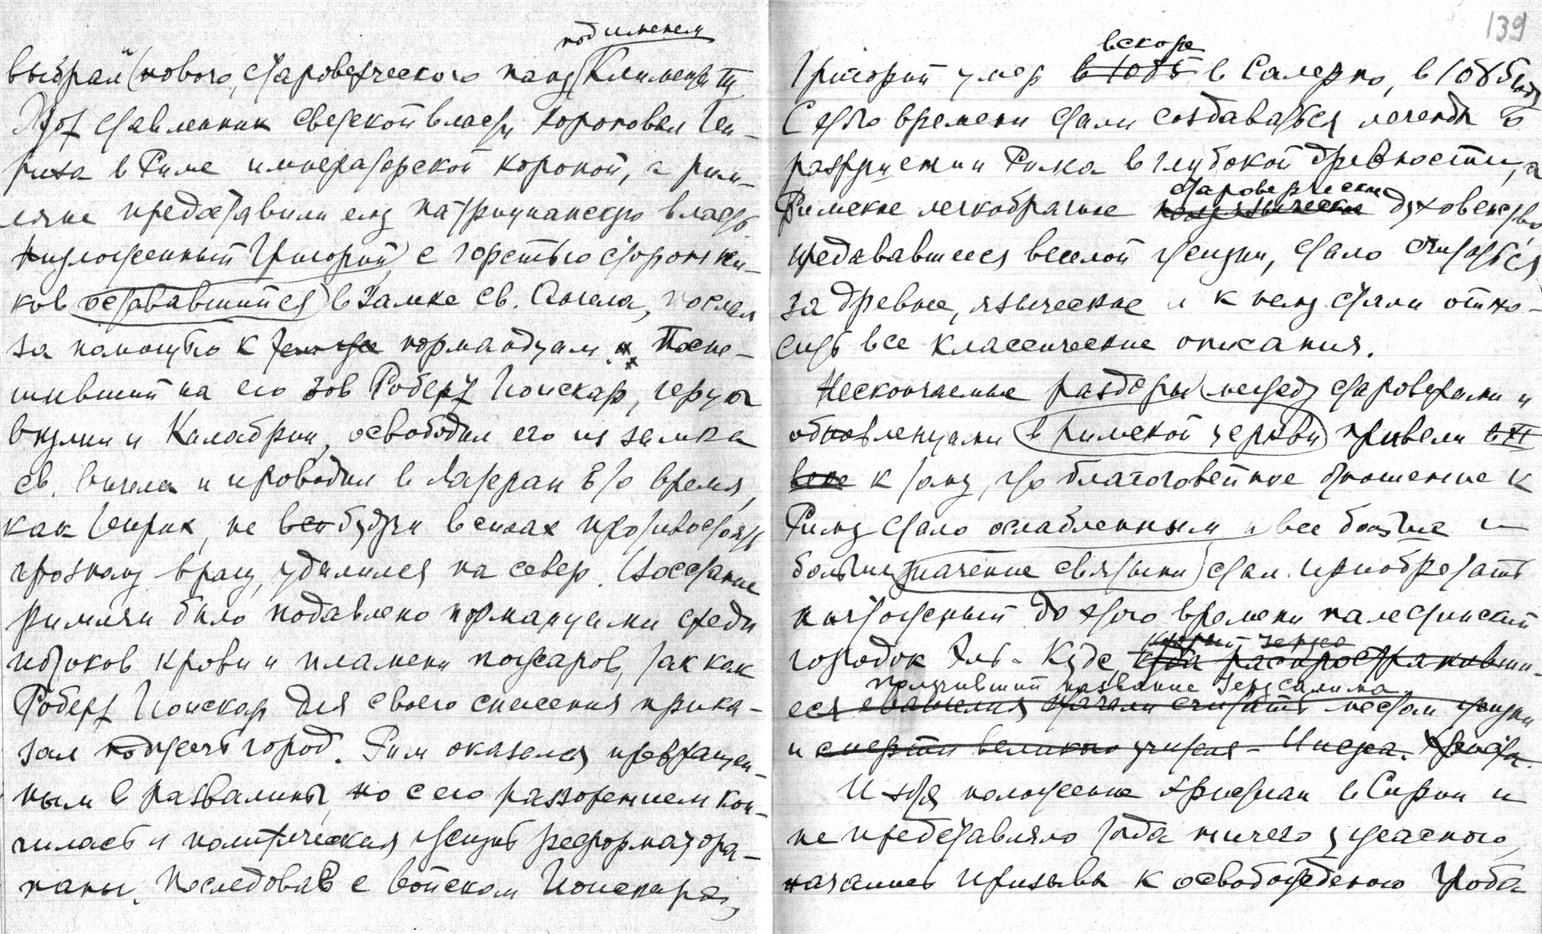 под именем
выбрал нового, староверческого папу Климента III
Этот ставленник светской власти короновал Ген-
риха в Риме императорской короной, а рим-
ляне предоставили ему патрицианскую власть.
Низложенный Григорий, с горстью сторонни-
ков остававшийся в замке св. Ангела, послал
за помощью к нормандцам. Поспе-
шивший на его зов Роберт Гюискар, герцог
Апулии и Калабрии, освободил его из замка
св. Ангела и проводил в Латеран в то время,
как Генрих, не будучи в силах противостоять
грозному врагу, удалился на север. Восстание
римлян было подавлено норманцами среди
потоков крови и пламени пожаров, так как
Роберт Гюискар для своего спасения прика-
зал поджечь город. Рим оказался превращен-
ным в развалины, но с его разорением кон-
чилась и политическая жизнь реформатора-
папы. Последовав с войском Гюискара,
139
вскоре
Григорий умер в 1085 в Салерно, в 1085 году
С этого времени стали создаваться легенды о
разрушении Рима в глубокой древности, а
староверческое
Римское легкобрачное духовенство
предававшееся веселой жизни, стало считаться
за древнее, языческое и к нему стали отно-
сить все классические описания.
Нескончаемые раздоры между староверами и
обновленцами в римской церкви привели в XI
веке к тому, что благоговейное отношение к
Риму стало ослабленным и все больше и
больше значение святыни стал приобретать
ничтожный до этого времени палестинский
городок Эль-Кудс, где распространивши-
получивший название Иерусалима
еся евангелия начали считать местом жизни
и смерти великого учителя - Иисуса Христа.
И хотя положение христиан в Сирии и
не представляло тогда ничего ужасного,
начались призывы к освобождению Гроба